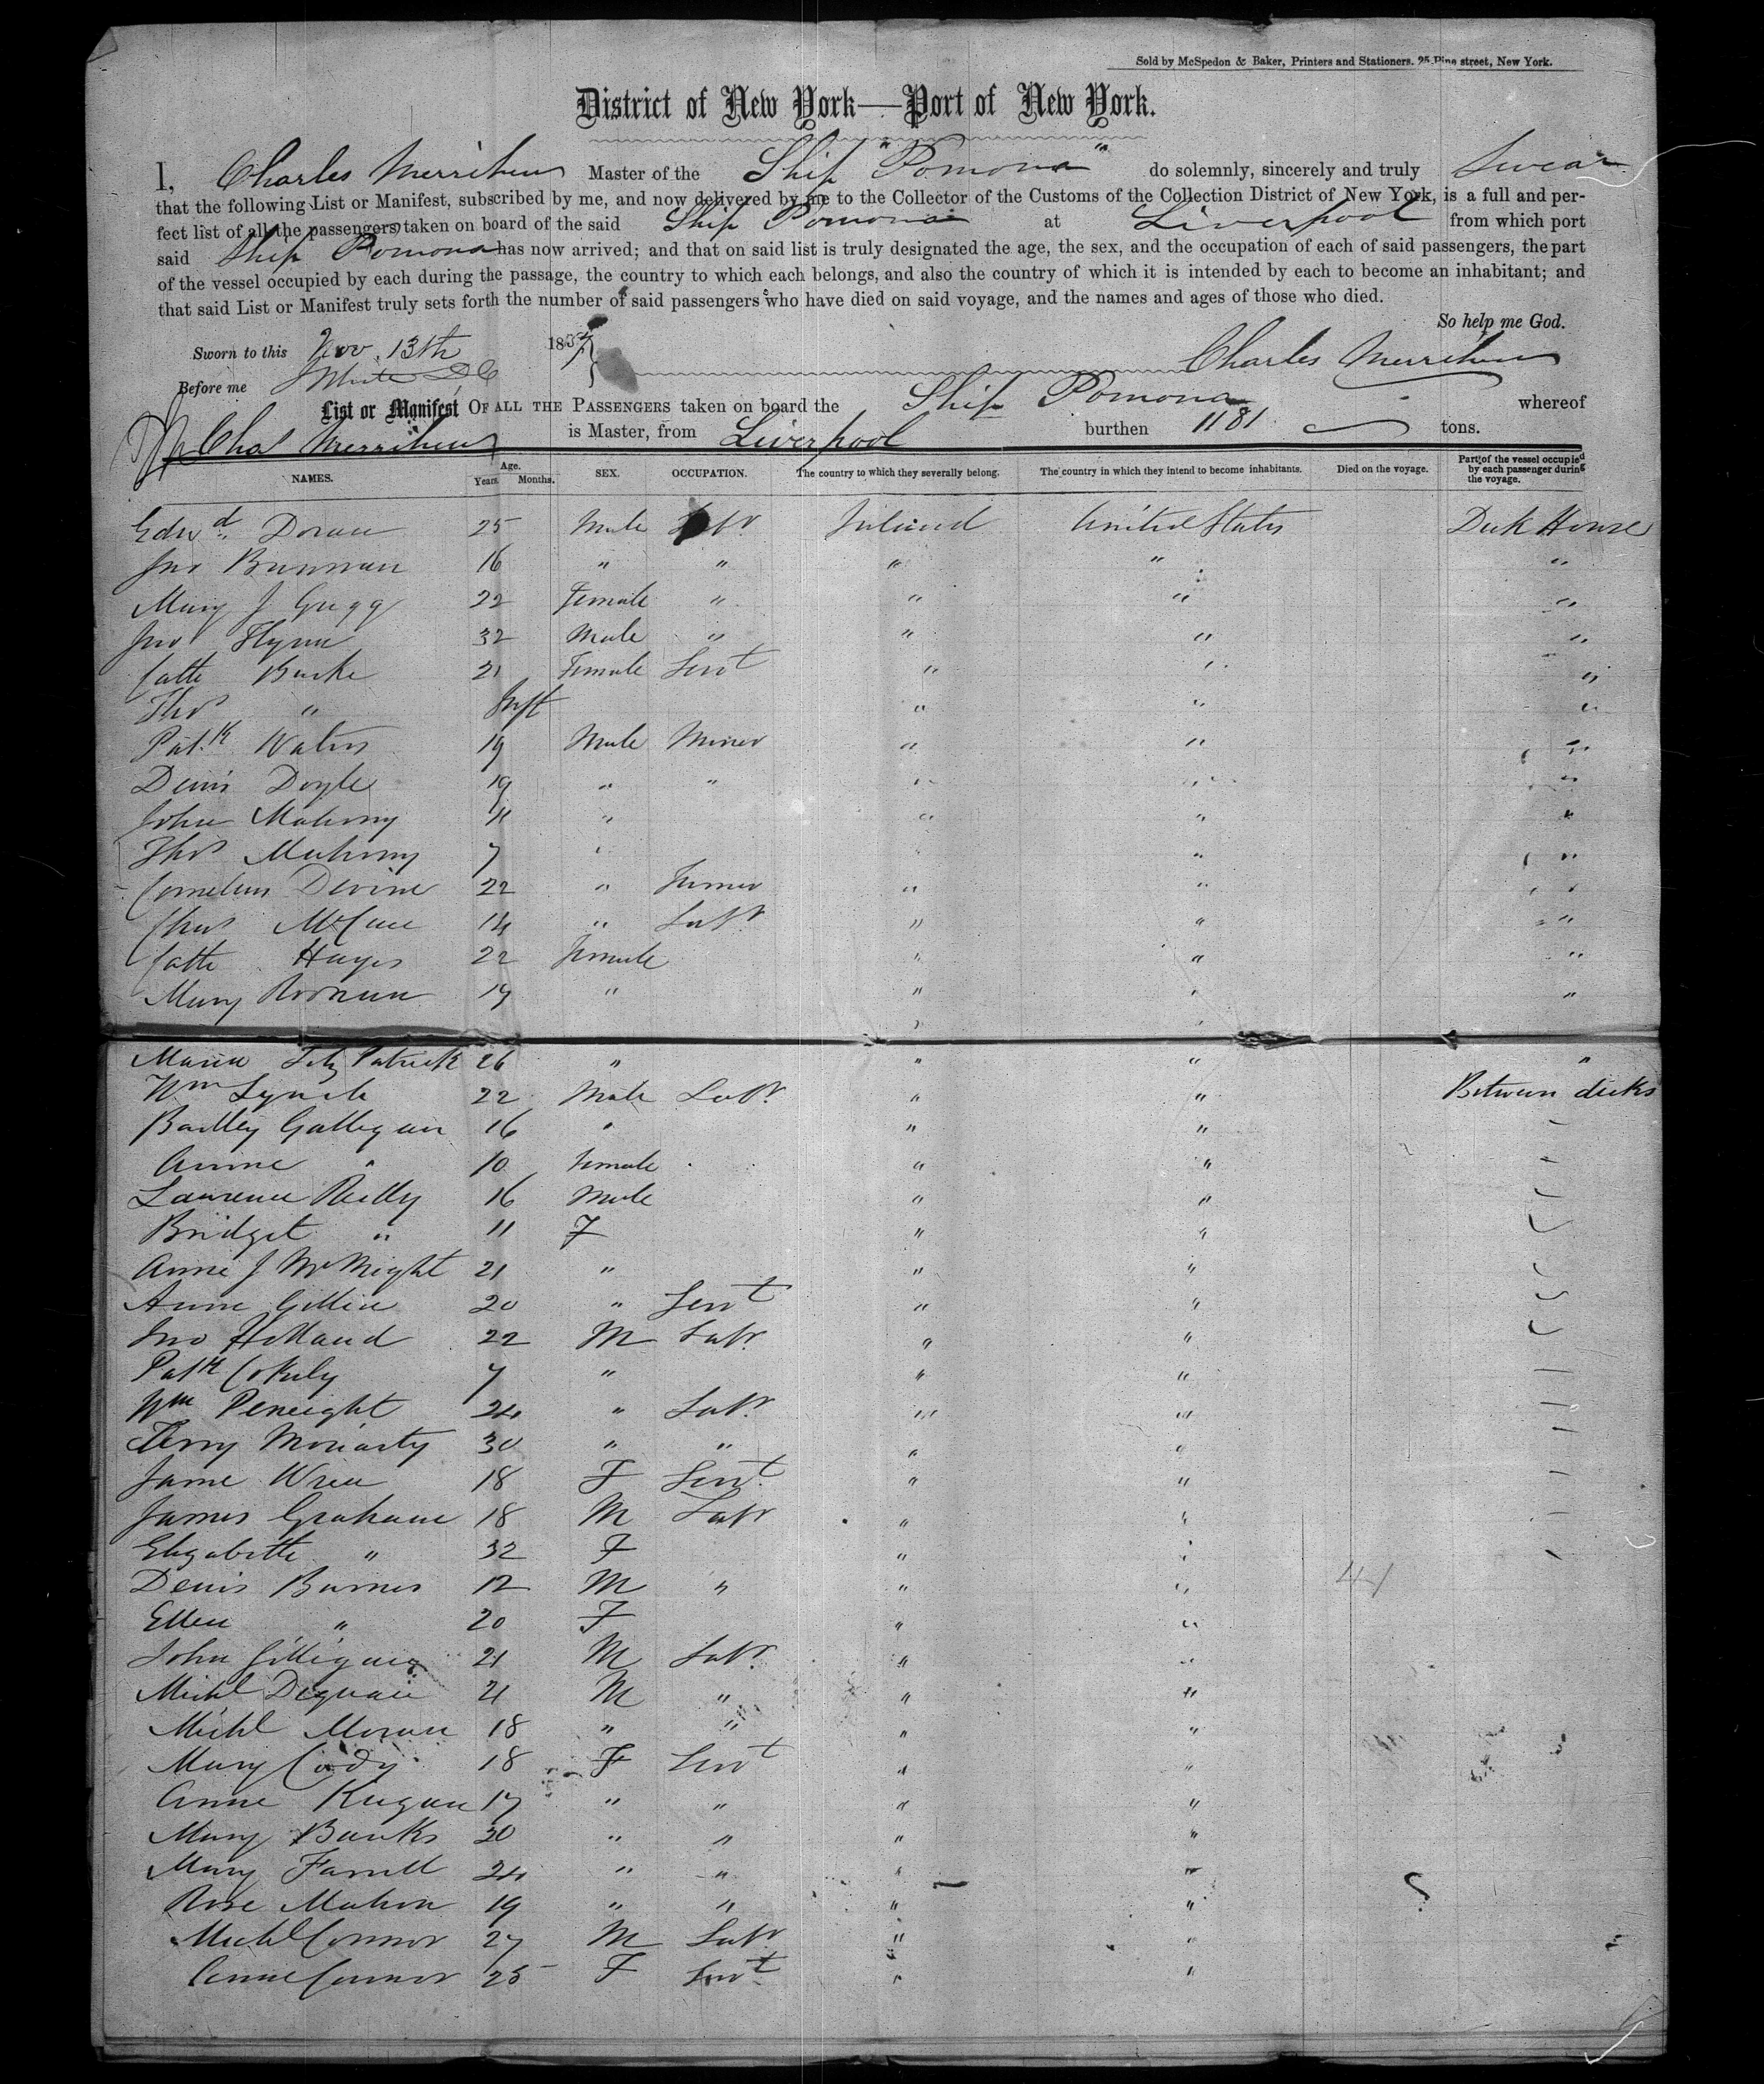 Sold by McSpedon & Baker, Printers and Stationers. 25 Pine street, New York.
District of New York—Port of New York.
I, Charles Merrihew Master of the Ship "Pomona" do solemnly, sincerely and truly Swear
that the following List or Manifest, subscribed by me, and now delivered by me to the Collector of the Customs of the Collection District of New York, is a full and per-
fect list of all the passengers taken on board of the said Ship Pomona at Liverpool from which port
said Ship Pomona has now arrived; and that on said list is truly designated the age, the sex, and the occupation of each of said passengers, the part
of the vessel occupied by each during the passage, the country to which each belongs, and also the country of which it is intended by each to become an inhabitant; and
that said List or Manifest truly sets forth the number of said passengers who have died on said voyage, and the names and ages of those who died.
So help me God.
Sworn to this Nov. 13th 185 Charles Merrihew
Before me White D C
List or Manifest OF ALL THE PASSENGERS taken on board the Ship Pomona whereof
Chas Merrihew is Master, from Liverpool burthen 1181 tons.
NAMES. Age. Years. Months. SEX. OCCUPATION. The country to which they severally belong. The country in which they intend to become inhabitants. Died on the voyage. Part of the vessel occupied by each passenger during the voyage.
Edwd. Doran 25 Male Labr Ireland United States Deck House
Jno Brennan 16 " " " " "
Mary J Gregg 22 Female " " " "
Jno Flynn 32 Male " " " "
Cathe Burke 21 Female Servt " " "
Thos " Inft " " "
Patk Waters 19 Male Miner " " "
Denis Doyle 19 " " " " "
John Mahony 11 " " " "
Thos Mahony 7 " " " "
Cornelius Devine 22 " Farmer " " "
Chas McCue 14 " Labr " " "
Cathe Hayes 22 Female " " "
Mary 19 " " " "
Maria Fitz Patrick 26 " " " "
Wm Lynch 22 Male Labr " " Between decks
Galligan 16 " " "
Anne " 10 Female " "
Lawrence Reilly 16 Male " "
Bridget " 11 F " "
Anne J McNight 21 " " "
Anne 20 " Servt " "
Jno Holland 22 M Labr " "
Patk 7 " " "
Wm 24 " Labr " "
Terry Moriarty 30 " " " "
Jane Wren 18 F Servt " "
James Graham 18 M Labr " "
Elizabeth " 32 F " "
Denis 12 M " " " 41
Ellen " 20 F " "
John Gilligan 21 M Labr " "
Michl 21 M " " "
Michl Moran 18 " " " "
Mary Cody 18 F Servt " "
Anne Keegan 17 " " " "
Mary Banks 20 " " " "
Mary Farrell 24 " " " "
Rose Mahon 19 " " " "
Michl Connor 27 M Labr " "
Anne Connor 25 F Servt " "